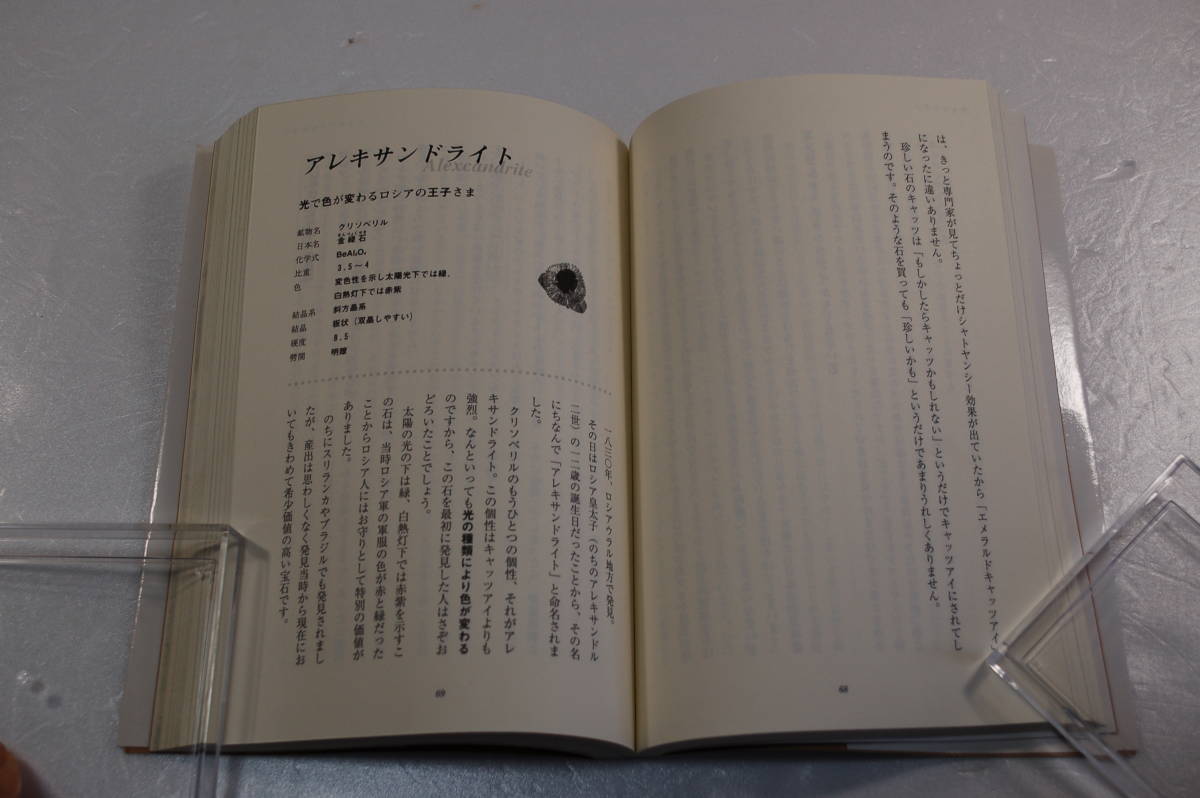 は、きっと専門家が見てちょっとだけシャトヤンシー効果が出ていたから「エメラルドキャッツアイ」
になったに違いありません。
珍しい石のキャッツは「もしかしたらキャッツかもしれない」というだけでキャッツアイにされてし
まうのです。そのような石を買っても「珍しいかも」というだけであまりうれしくありません。
68
アレキサンドライト
Alexcandrite
光で色が変わるロシアの王子さま
鉱物名 クリソベリル
日本名 金緑石
化学式 BeAl₂O₄
比重 3.5〜4
色 変色性を示し太陽光下では緑、
白熱灯下では赤紫
結晶系 斜方晶系
結晶 板状（双晶しやすい）
硬度 8.5
劈開 明瞭
一八三〇年、ロシアウラル地方で発見。
その日はロシア皇太子（のちのアレキサンドル
二世）の一二歳の誕生日だったことから、その名
にちなんで「アレキサンドライト」と命名されま
した。
クリソベリルのもうひとつの個性、それがアレ
キサンドライト。この個性はキャッツアイよりも
強烈。なんといっても光の種類により色が変わる
のですから、この石を最初に発見した人はさぞお
どろいたことでしょう。
太陽の光の下は緑、白熱灯下では赤紫を示すこ
の石は、当時ロシア軍の軍服の色が赤と緑だった
ことからロシア人にはお守りとして特別の価値が
ありました。
のちにスリランカやブラジルでも発見されまし
たが、産出は思わしくなく発見当時から現在にお
いてもきわめて希少価値の高い宝石です。
69